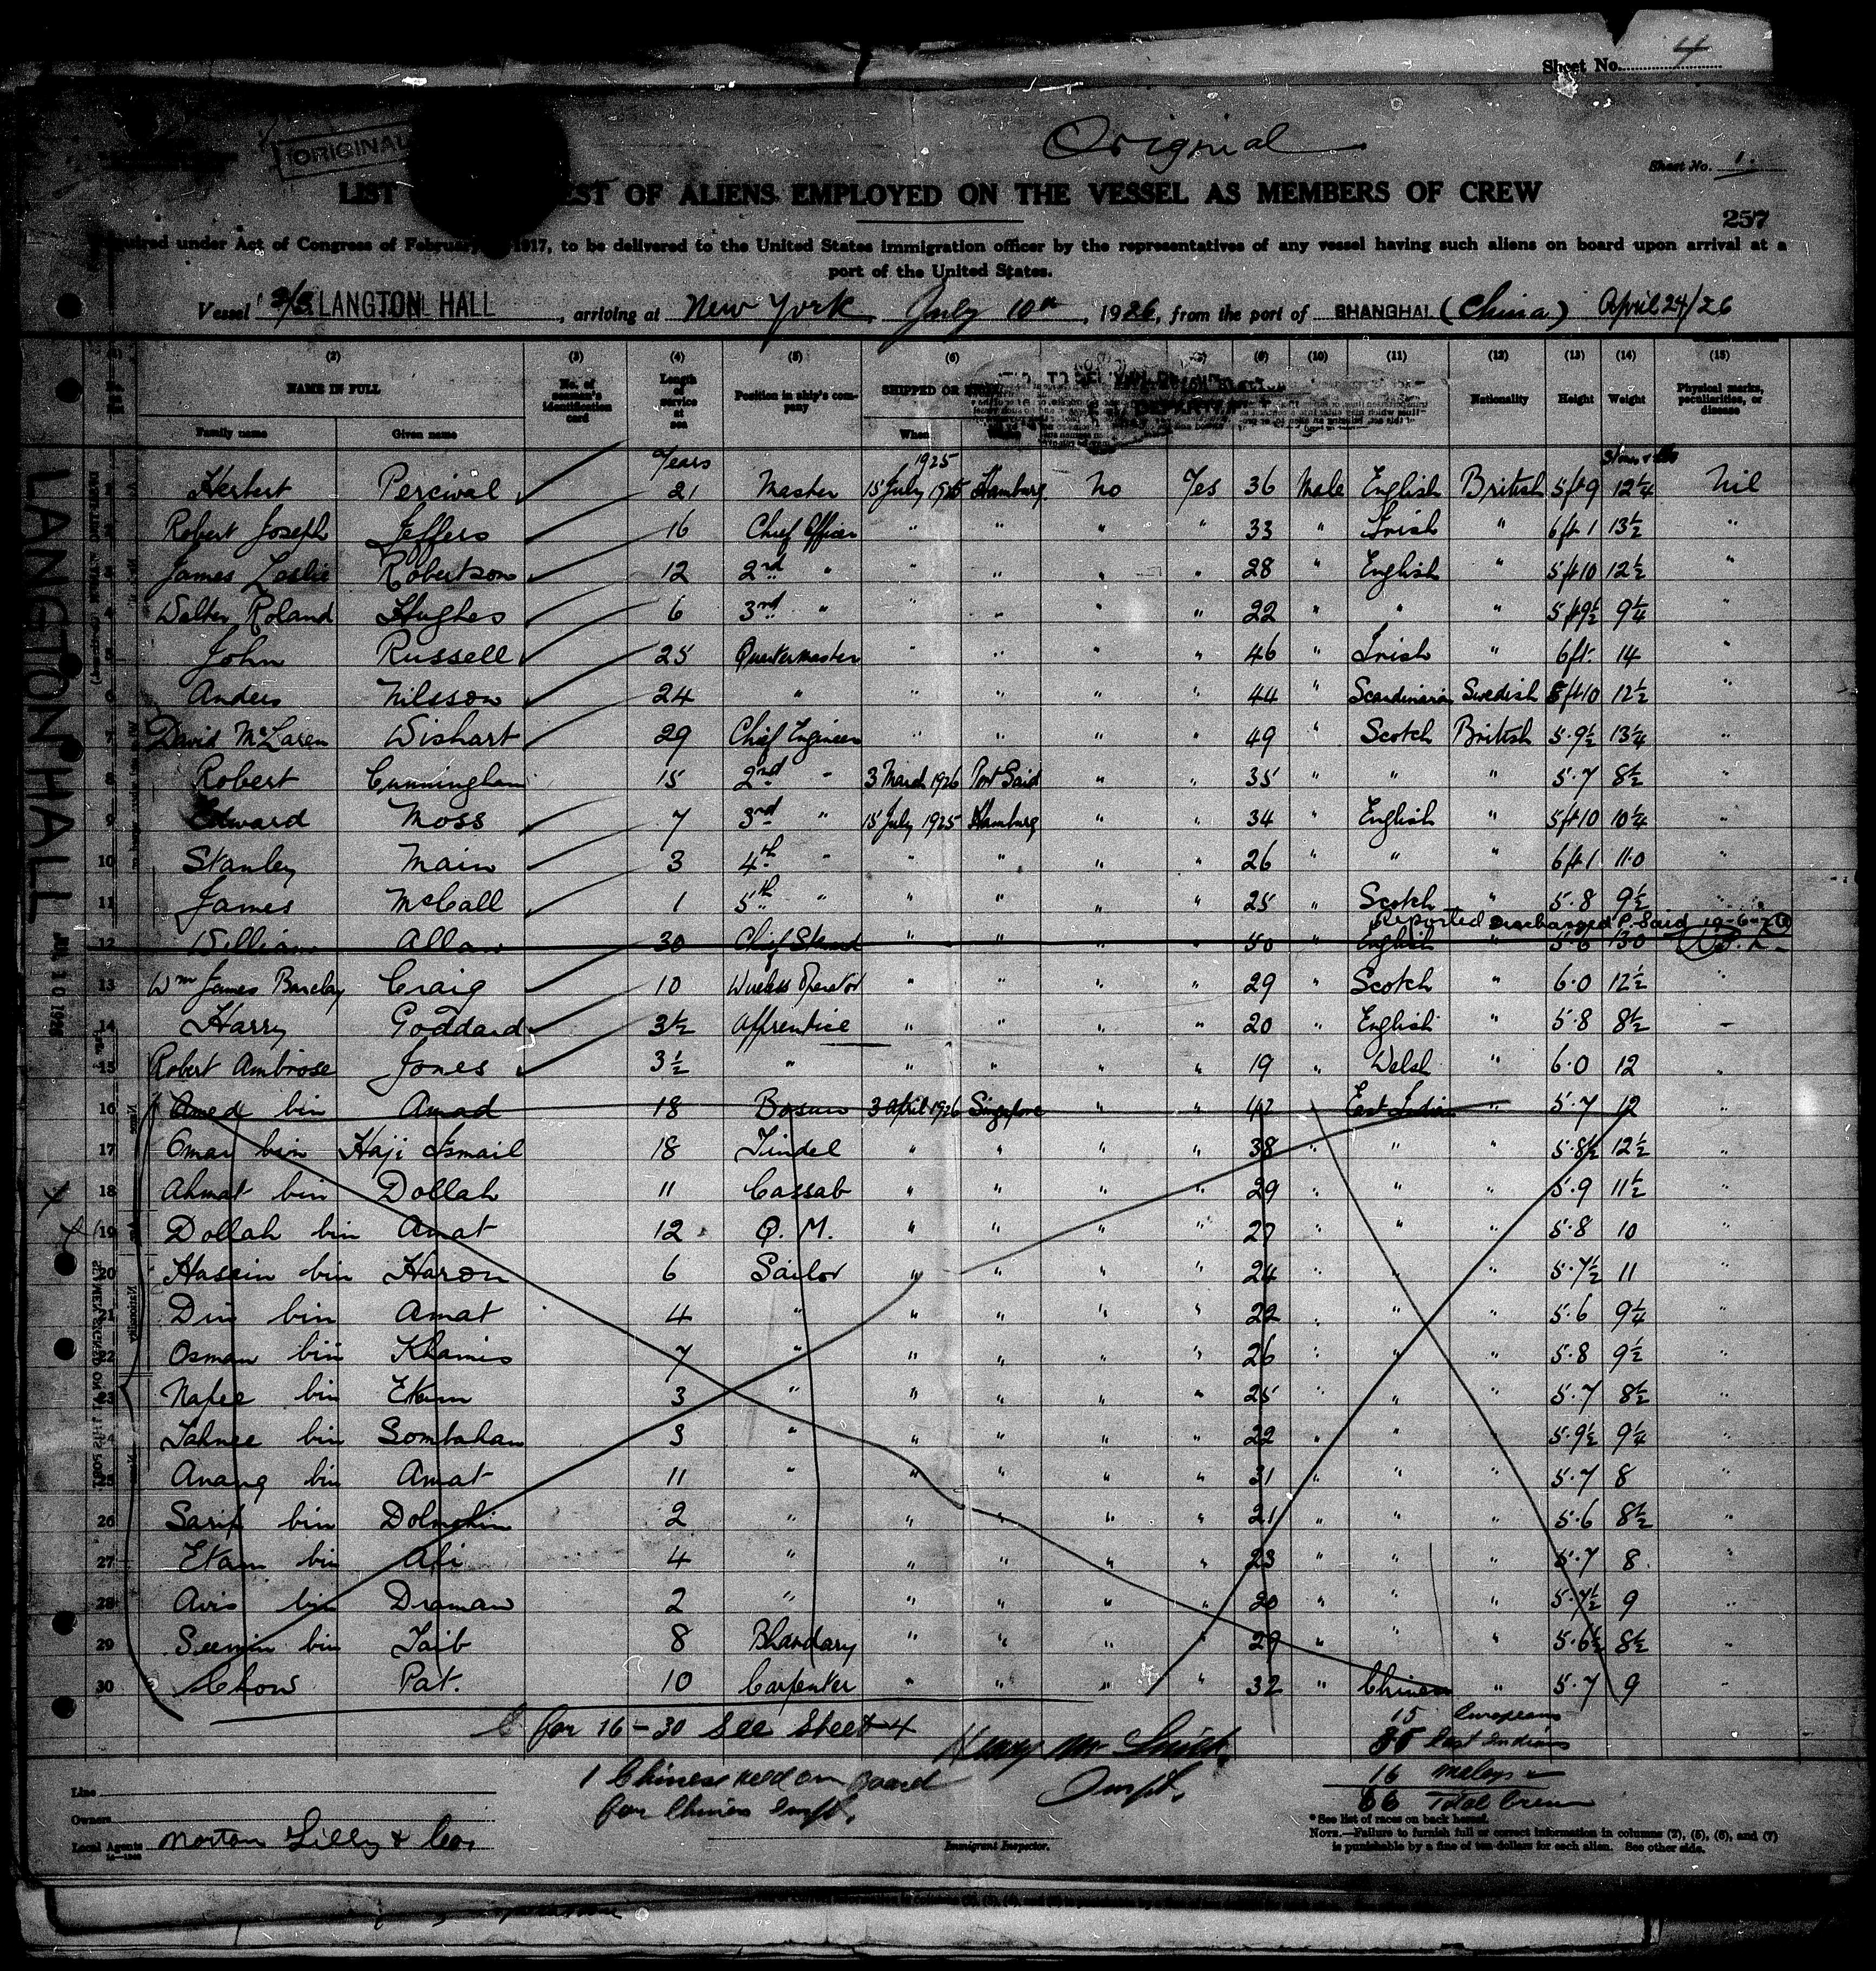 Sheet No. 4
ORIGINAL
Original
Sheet No. 1.
LIST EST OF ALIENS EMPLOYED ON THE VESSEL AS MEMBERS OF CREW
257
Required under Act of Congress of February 1917, to be delivered to the United States immigration officer by the representatives of any vessel having such aliens on board upon arrival at a
port of the United States.
Vessel S/S LANGTON HALL, arriving at New York, July 10th, 1926, from the port of SHANGHAI (China) April 24/26
(2) (3) (4) (5) (6) (9) (10) (11) (12) (13) (14) (15)
NAME IN FULL No. of seaman's identification card Length of service at sea Position in ship's company SHIPPED OR Nationality Height Weight Physical marks, peculiarities, or disease
Family name Given name When
Years 1925
Herbert Percival 21 Master 15 July 1925 Hamburg No Yes 36 Male English British 5ft9 12¼ Nil
Robert Joseph Jeffers 16 Chief Officer " " " " 33 " Irish " 6ft1 13½ "
James Leslie Robertson 12 2nd " " " " " 28 " English " 5ft10 12½ "
4 Walter Roland Hughes 6 3rd " " " " " 22 " " " 5ft9½ 9¼ "
John Russell 25 Quartermaster " " " " 46 " Irish " 6ft. 14 "
6 Anders Nilsson 24 " " " " " 44 " Scandinavian Swedish 5ft10 12½ "
7 David McLaren Wishart 29 Chief Engineer " " " " 49 " Scotch British 5.9½ 13¼ "
8 Robert Cunningham 15 2nd " 3 March 1926 Port Said " " 35 " " " 5.7 8½ "
9 Edward Moss 7 3rd " 15 July 1925 Hamburg " " 34 " English " 5ft10 10¼ "
10 Stanley Main 3 4th " " " " " 26 " " " 6ft1 11.0 "
11 James McCall 1 5th " " " " " 25 " Scotch " 5.8 9½ "
Reported Discharged P. Said
12 William Allan 30 Chief Steward " " " " 50 " English " 5.6 13.0
13 Wm James Barclay Craig 10 Wireless Operator " " " " 29 " Scotch " 6.0 12½ "
14 Harry Goddard 3½ Apprentice " " " " 20 " English " 5.8 8½ -
15 Robert Ambrose Jones 3½ " " " " " 19 " Welsh " 6.0 12 "
16 Amed bin Amad 18 Bosun 3 April 1926 Singapore " " 42 " East Indian " 5.7 12 "
17 Omar bin Haji Ismail 18 Tindel " " " " 38 " " " 5.8½ 12½ "
18 Ahmat bin Dollah 11 Cassab " " " " 29 " " " 5.9 11½ "
19 Dollah bin Amat 12 Q. M. " " " " 27 " " " 5.8 10 "
20 Hassin bin Haron 6 Sailor " " " " 24 " " " 5.7½ 11 "
21 Din bin Amat 4 " " " " " 22 " " " 5.6 9¼ "
22 Osman bin Khamis 7 " " " " " 26 " " " 5.8 9½ "
23 Napee bin Etam 3 " " " " " 25 " " " 5.7 8½ "
24 Tahnee bin Sombahan 3 " " " " " 22 " " " 5.9½ 9¼ "
25 Anang bin Amat 11 " " " " " 31 " " " 5.7 8 "
26 Sarip bin Dolmokin 2 " " " " " 21 " " " 5.6 8½ "
27 Etam bin Ali 4 " " " " " 23 " " " 5.7 8 "
28 Avis bin Draman 2 " " " " " 20 " " " 5.7½ 9 "
29 Seemin bin Taib 8 Bhandary " " " " 29 " " " 5.6½ 8½ "
30 Chow Pat. 10 Carpenter " " " " 32 " Chinese " 5.7 9
for 16-30 See Sheet 4
15 Europeans
East Indians
16 Malays
66 Total Crew
1 Chinese held on board
for Chinese Inspt.
Henry M. Smith
Inspt.
Line
Owners
Local Agents Norton Lilly & Co.
Immigrant Inspector.
* See list of races on back hereof.
NOTE.—Failure to furnish full or correct information in columns (2), (5), (6), and (7)
is punishable by a fine of ten dollars for each alien. See other side.
LANGTON HALL
JUL 10 1926